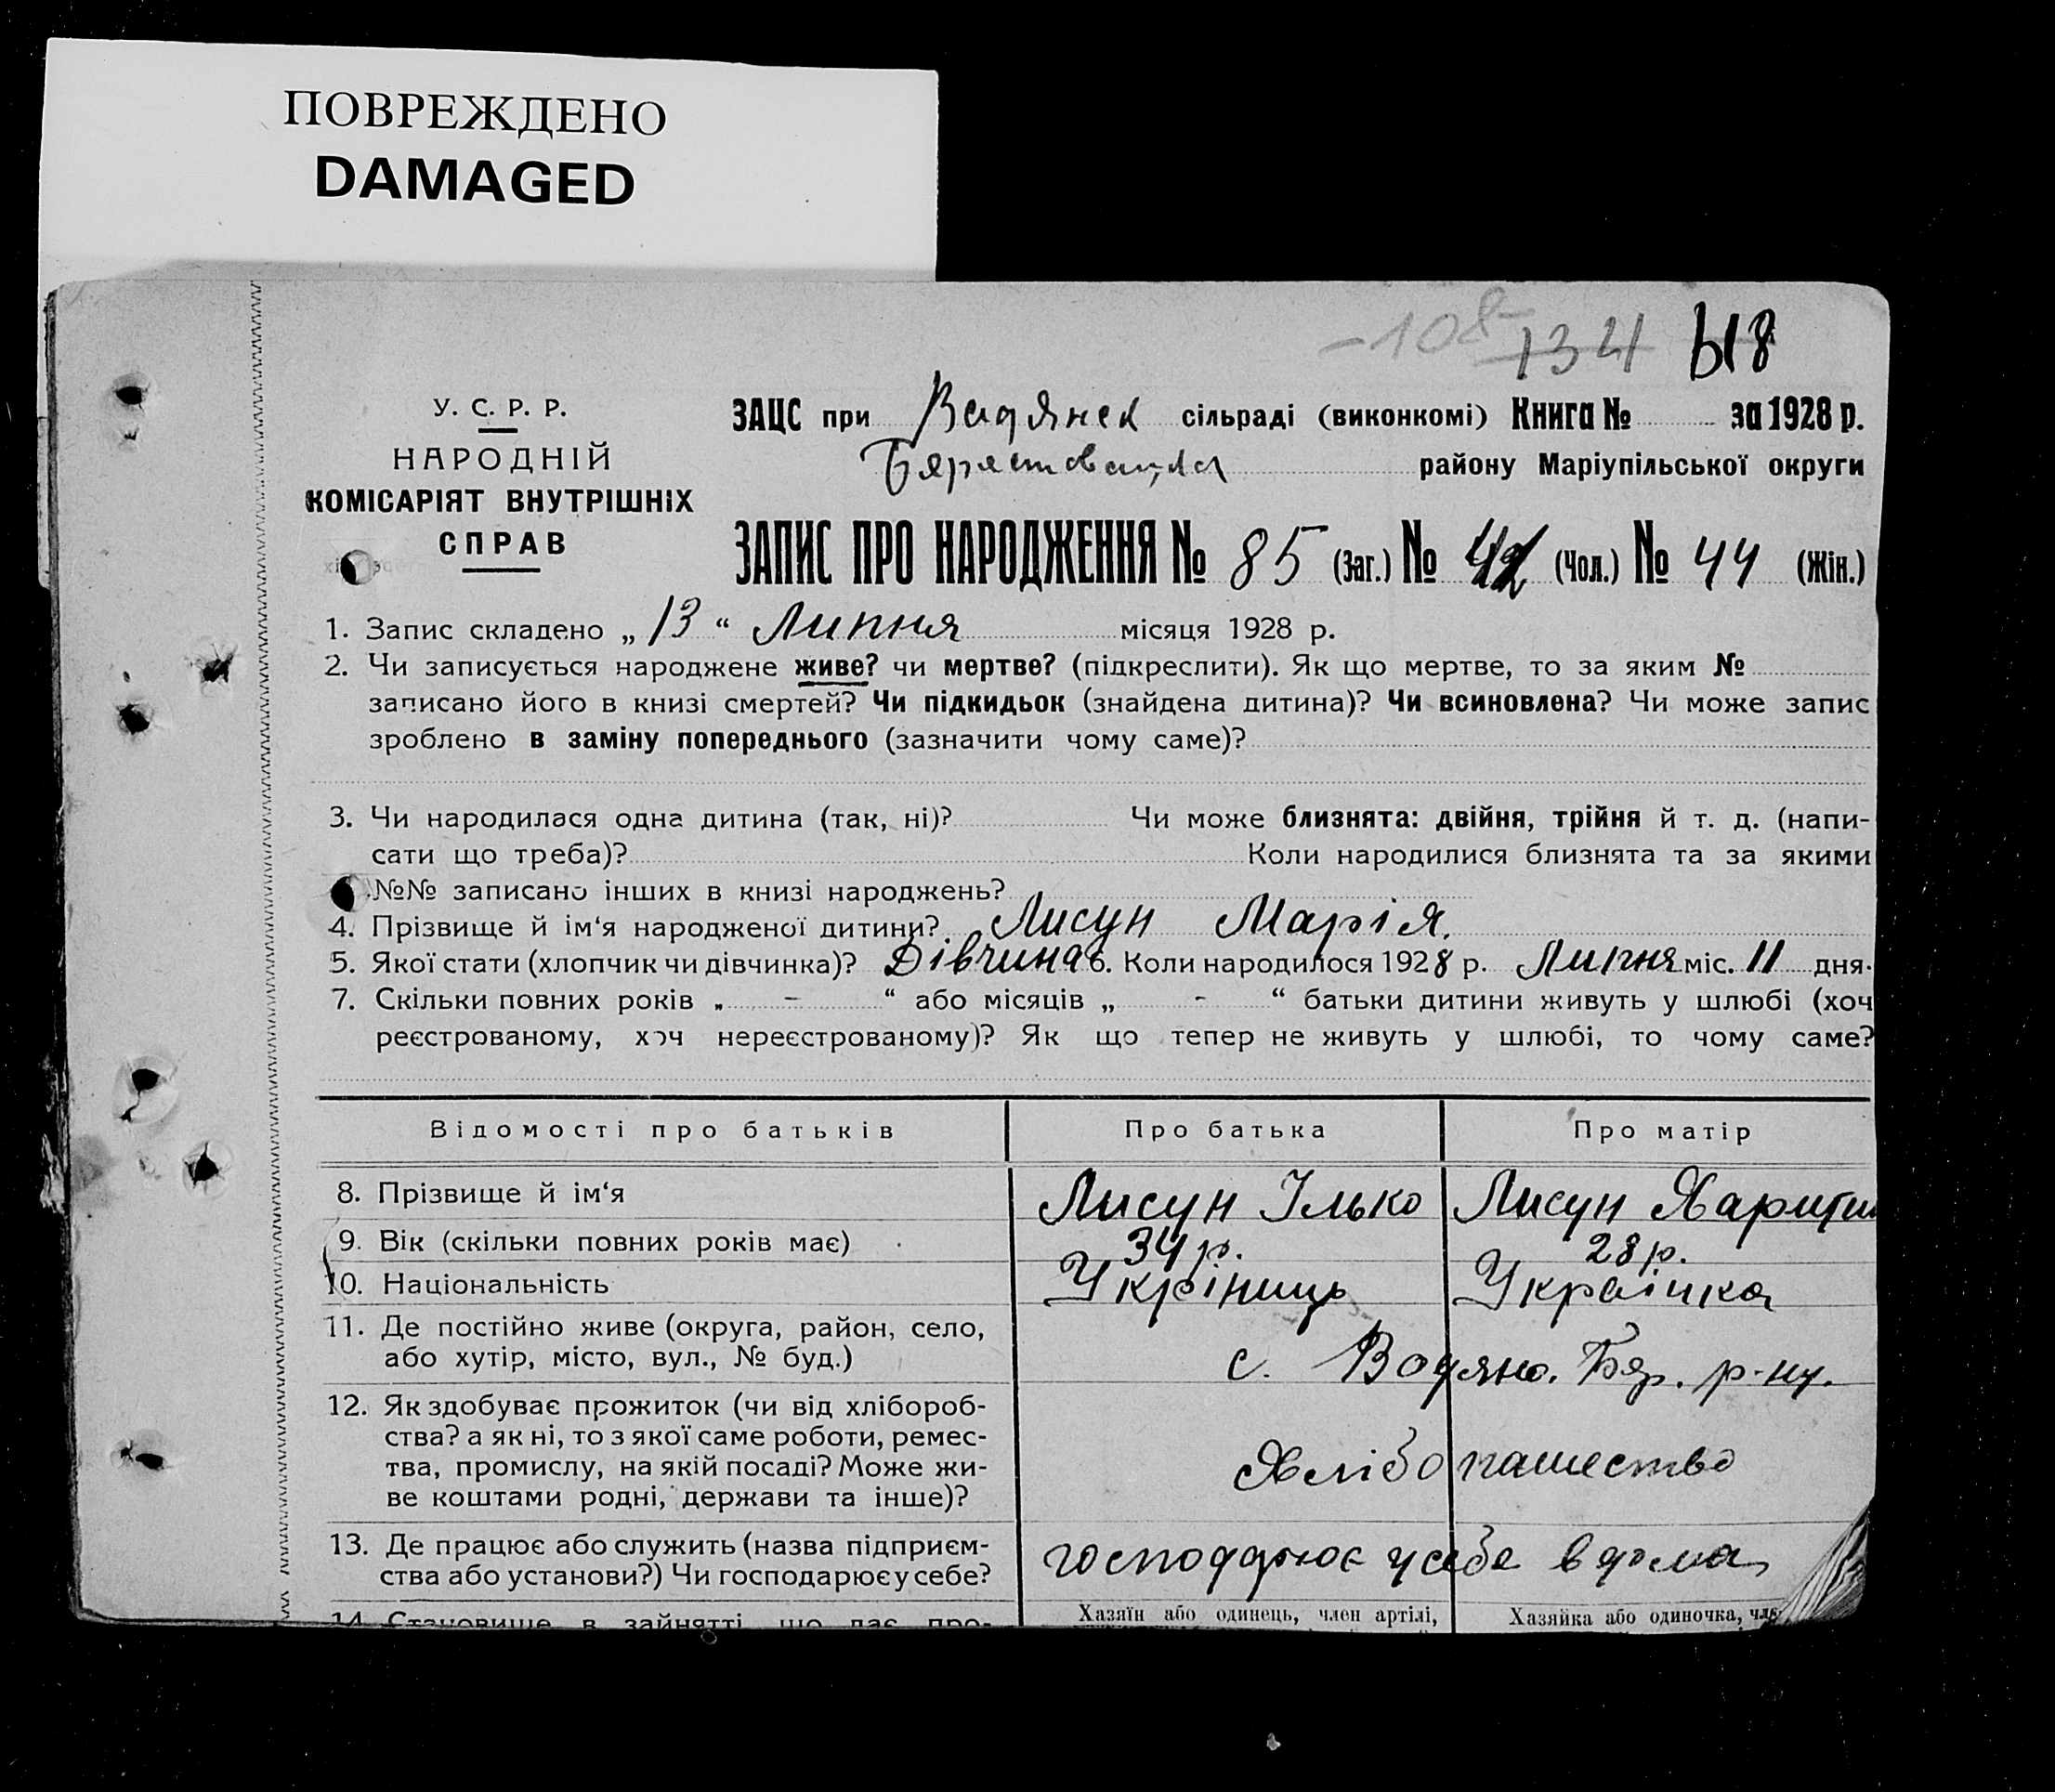 ПОВРЕЖДЕНО
DAMAGED
-108- 134
У. С. Р. Р.
НАРОДНІЙ
КОМІСАРІЯТ ВНУТРІШНІХ
СПРАВ
ЗАЦС при Водянск сільраді (виконкомі) Книга № за 1928 р.
району Маріупільської округи
ЗАПИС ПРО НАРОДЖЕННЯ № 85 (Заг.) № (Чол.) № 44 (Жін.)
1. Запис складено „ 13 “ Липня місяця 1928 р.
2. Чи записується народжене живе? чи мертве? (підкреслити). Як що мертве, то за яким №
записано його в книзі смертей? Чи підкидьок (знайдена дитина)? Чи всиновлена? Чи може запис
зроблено в заміну попереднього (зазначити чому саме)?
3. Чи народилася одна дитина (так, ні)? Чи може близнята: двійня, трійня й т. д. (напи-
сати що треба)? Коли народилися близнята та за якими
№№ записано інших в книзі народжень?
4. Прізвище й ім‘я народженої дитини? Лисун Марія.
5. Якої стати (хлопчик чи дівчинка)? Дівчина 6. Коли народилося 1928 р. Липня міс. 11 дня.
7. Скільки повних років „ - “ або місяців „ - “ батьки дитини живуть у шлюбі (хоч
реєстрованому, хоч нереєстрованому)? Як що тепер не живуть у шлюбі, то чому саме?
Відомості про батьків Про батька Про матір
8. Прізвище й ім‘я Лисун Ілько Лисун
9. Вік (скільки повних років має) 34 р. 28 р.
10. Національність Укрінць Українка
11. Де постійно живе (округа, район, село,
або хутір, місто, вул., № буд.) с. Водяно. Бер. р-ну.
12. Як здобуває прожиток (чи від хлібороб-
ства? а як ні, то з якої саме роботи, ремес-
тва, промислу, на якій посаді? Може жи-
ве коштами родні, держави та інше)? Хлібопашество
13. Де працює або служить (назва підприєм-
ства або установи?) Чи господарює у себе? господарює у себе вдома
14. Становище в зайнятті, що дає про- Хазяїн або одинець, член артілі, Хазяйка або одиночка, чле